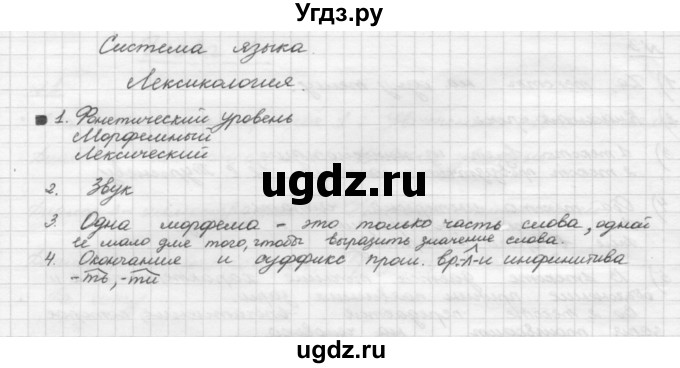 Угдз.ру
Система языка.
Лексикология.
1. Фонетический уровень
Морфемный
Лексический
ugdz.ru
2. Звук
3. Одна морфема - это только часть слова, одной
её мало для того, чтобы выразить значение слова.
4. Окончание и суффикс прош. вр.-л-и инфинитива
-ть, -ти
ugdz.ru